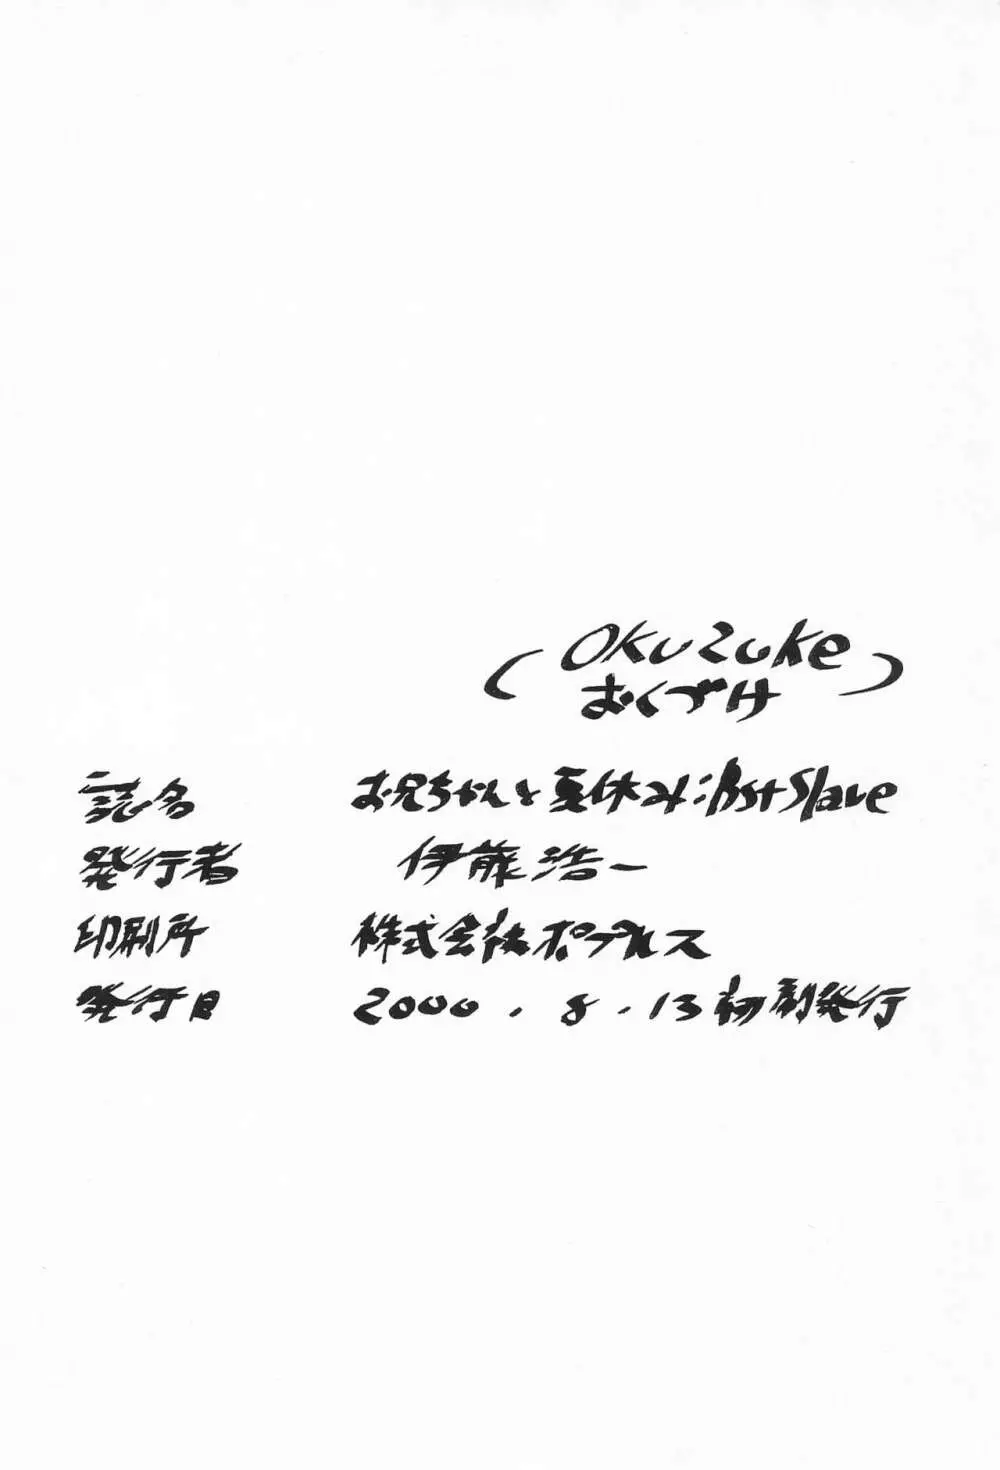 Okuzuke
おくづけ
誌名 お兄ちゃんと夏休み:1st Slave
発行者 伊藤浩一
印刷所 株式会社ポプルス
発行日 2000.8.13初刷発行